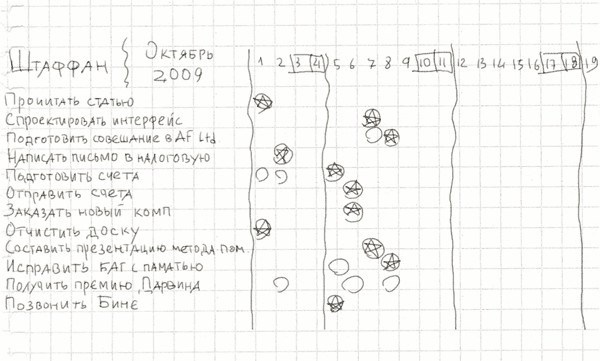 Штаффан { Октябрь 2009 } 1 2 3 4 5 6 7 8 9 10 11 12 13 14 15 16 17 18 19
Прочитать статью
Спроектировать интерфейс
Подготовить совещание в AF Ltd
Написать письмо в налоговую
Подготовить счета
Отправить счета
Заказать новый комп
Отчистить доску
Составить презентацию метода пом.
Исправить баг с паматью
Получить премию Дарвина
Позвонить Бине